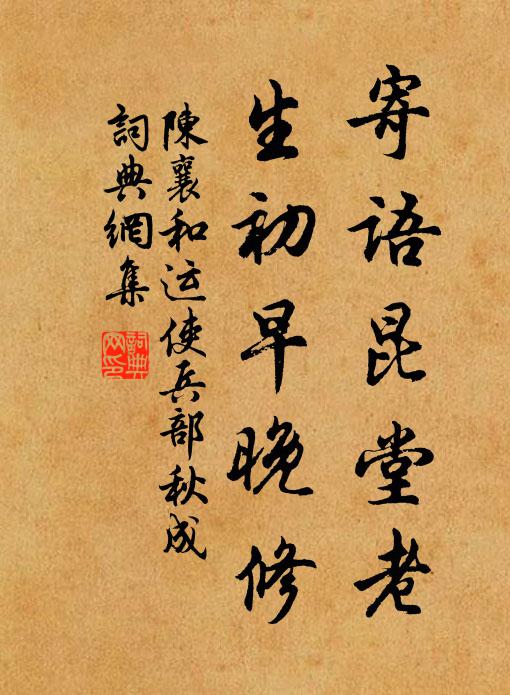 寄語昆堂老
生初早晚修
陳襄和运使兵部秋成
詞典網集
詞典
网印